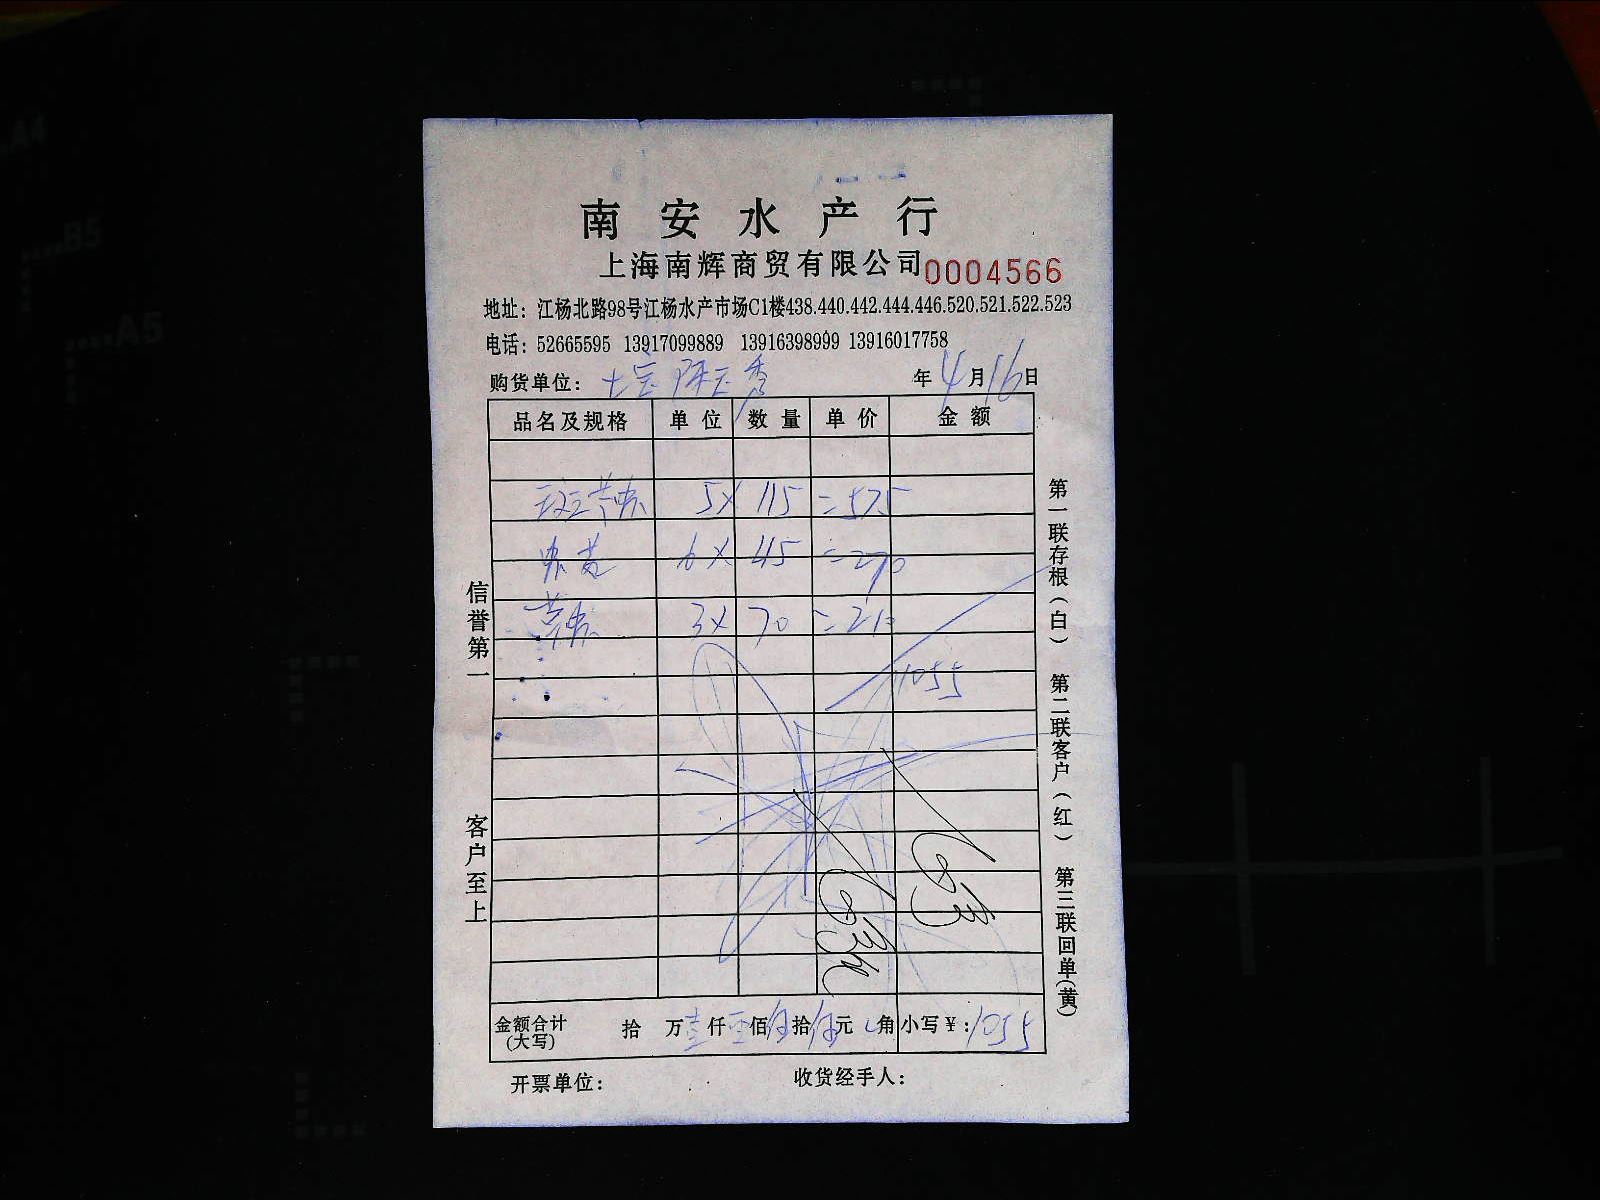 南安水产行
上海南辉商贸有限公司 0004566
地址：江杨北路98号江杨水产市场C1楼438.440.442.444.446.520.521.522.523
电话：52665595 13917099889 13916398999 13916017758
购货单位： 年4月16日
品名及规格 单位 数量 单价 金额
5× 115 =575
6× 45 =270
3× 70 =210
1055
金额合计(大写) 拾 万壹仟零佰伍拾伍元 角 小写￥:1055
开票单位： 收货经手人：
信誉第一
客户至上
第一联存根(白) 第二联客户(红) 第三联回单(黄)
A4
B5
A5